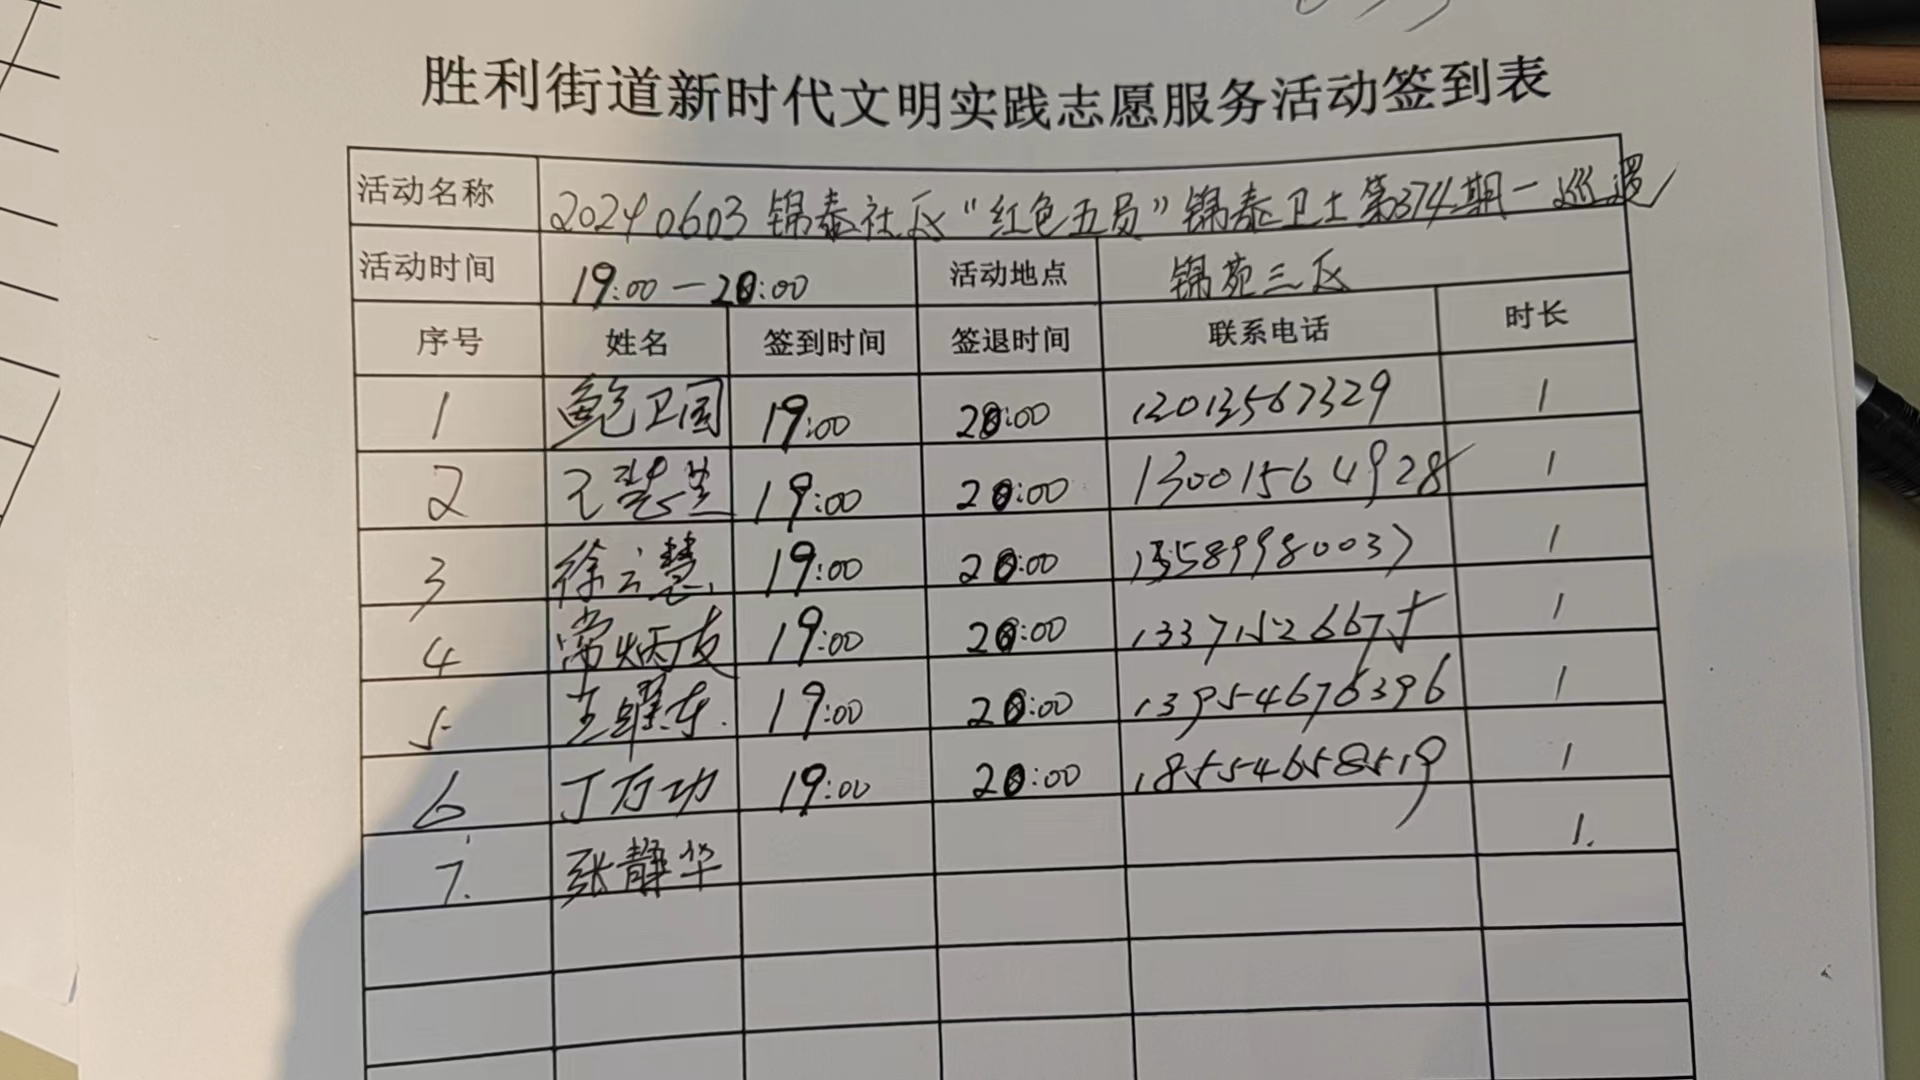 胜利街道新时代文明实践志愿服务活动签到表
活动名称 20240603 锦泰社区“红色五员”锦泰卫士第374期一巡逻
活动时间 19:00—20:00 活动地点 锦苑三区
序号 姓名 签到时间 签退时间 联系电话 时长
1 鲍卫国 19:00 20:00 1
2 19:00 20:00 13001564928 1
3 徐云慧 19:00 20:00 13589980037 1
4 常炳友 19:00 20:00 1
5 王耀东 19:00 20:00 13954676396 1
6 丁万功 19:00 20:00 18554658519 1
7. 张静华 1.